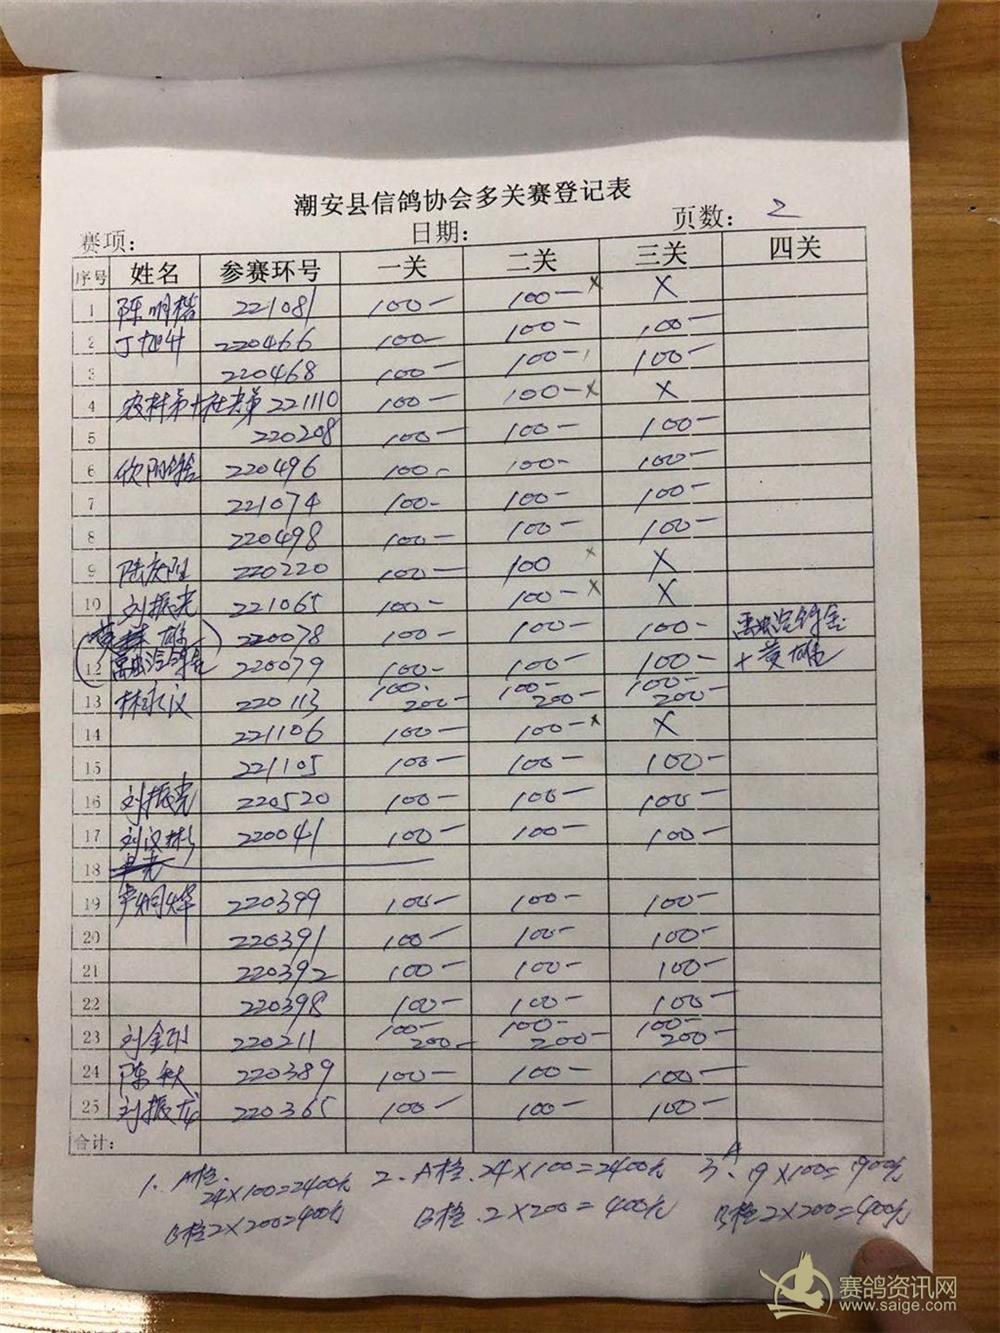 潮安县信鸽协会多关赛登记表
赛项: 日期: 页数: 2
序号 姓名 参赛环号 一关 二关 三关 四关
1 陈明楷 221081 100- 100- x X
2 丁旭叶 220466 100- 100- 100-
3 220468 100- 100- 100-
4 农科第 221110 100- 100- x X
5 220208 100- 100- 100-
6 220496 100- 100- 100-
7 221074 100- 100- 100-
8 220498 100- 100- 100-
9 陆庆 220220 100- 100 x X
10 刘振光 221065 100- 100- x X
雄 220078 100- 100- 100-
12 220079 100- 100- 100- + 黄雄
13 林永议 220113 100- 200- 100- 200- 100- 200-
14 221106 100- 100- x X
15 221105 100- 100- 100-
16 刘振光 220520 100- 100- 100-
17 刘议彬 220041 100- 100- 100-
18
19 尹炯烽 220399 100- 100- 100-
20 220391 100- 100- 100-
21 220392 100- 100- 100-
22 220398 100- 100- 100-
23 刘金 220211 100- 200- 100- 200- 100- 200-
24 陈 220389 100- 100- 100-
25 刘振龙 220365 100- 100- 100-
合计:
1. A栏. 24×100=2400元 2. A栏. 24×100=2400元 3. A 19×100=1900元
B栏2×200=400元 B栏. 2×200=400元 B栏2×200=400元
赛鸽资讯网
www.saige.com